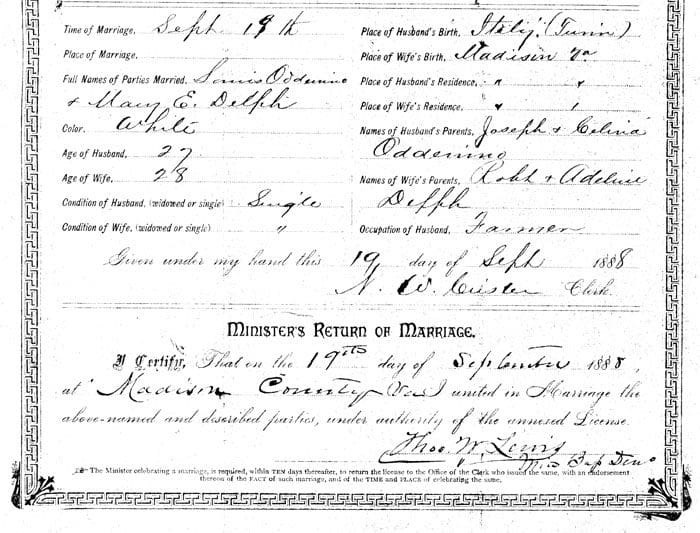 Time of Marriage, Sept 19th
Place of Marriage,
Full Names of Parties Married, Louis Oddenino
+ Mary E. Delph
Color, White
Age of Husband, 27
Age of Wife, 28
Condition of Husband, (widowed or single) Single
Condition of Wife, (widowed or single) "
Place of Husband's Birth, Italy (Turin)
Place of Wife's Birth, Madison Va
Place of Husband's Residence, " "
Place of Wife's Residence, " "
Names of Husband's Parents, Joseph + Celina
Oddenino
Names of Wife's Parents, Robt + Adeline
Delph
Occupation of Husband, Farmer
Given under my hand this 19 day of Sept 1888
N. W. Crisler Clerk.
MINISTER'S RETURN OF MARRIAGE.
I Certify, That on the 19th day of September 1888,
at Madison County (Va) I united in Marriage the
above-named and described parties, under authority of the annexed License.
Thos. W. Lewis
Bap
The Minister celebrating a marriage, is required, within TEN days thereafter, to return the license to the Office of the Clerk who issued the same, with an endorsement
thereon of the FACT of such marriage, and of the TIME and PLACE of celebrating the same.